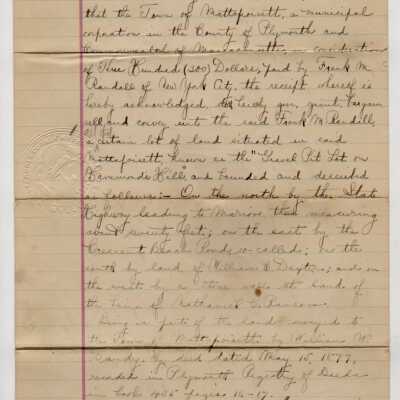 that the Town of Mattapoisett, a municipal
corporation in the County of Plymouth and
Commonwealth of Massachusetts, in consideration
of Three Hundred (300) Dollars, paid by Frank M.
Randall of New York City, the receipt whereof is
hereby acknowledged, do hereby give, grant, bargain
sell and convey unto the said Frank M. Randall,
a certain lot of land situated in said
Mattapoisett, known as the "Gravel Pit Lot on
Hill, and bounded and described
as follows:- On the north by the State
Highway leading to Marion, there measuring
seventy feet; on the east by the
Crescent Beach Road, so-called; on the
south by land of William B. ; and on
the west by a stone wall at land of
the heirs of Nathaniel C. Ransom.
Being a part of the land conveyed to
the Town of Mattapoisett by William W.
by deed dated May 15, 1877,
recorded in Plymouth Registry of Deeds
in book 435 pages 16-17.